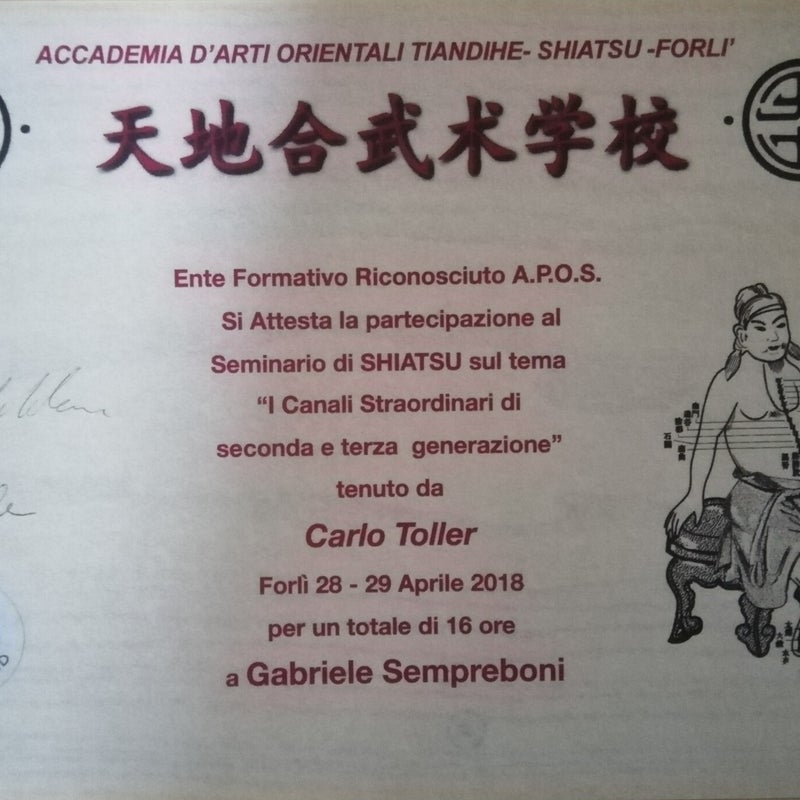 ACCADEMIA D'ARTI ORIENTALI TIANDIHE- SHIATSU -FORLI'
天地合武术学校
Ente Formativo Riconosciuto A.P.O.S.
Si Attesta la partecipazione al
Seminario di SHIATSU sul tema
“I Canali Straordinari di
seconda e terza generazione”
tenuto da
Carlo Toller
Forlì 28 - 29 Aprile 2018
per un totale di 16 ore
a Gabriele Sempreboni